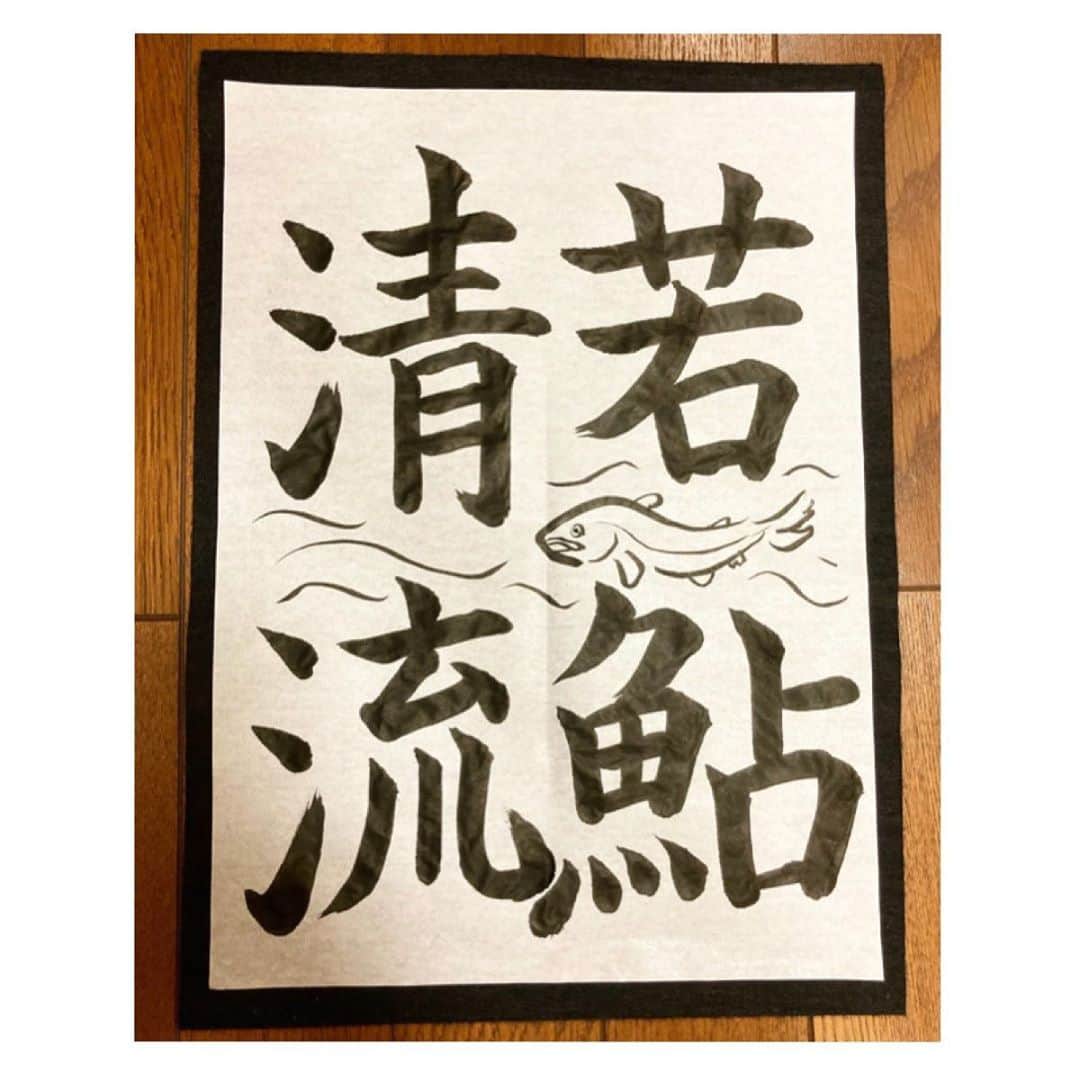 若鮎
清流